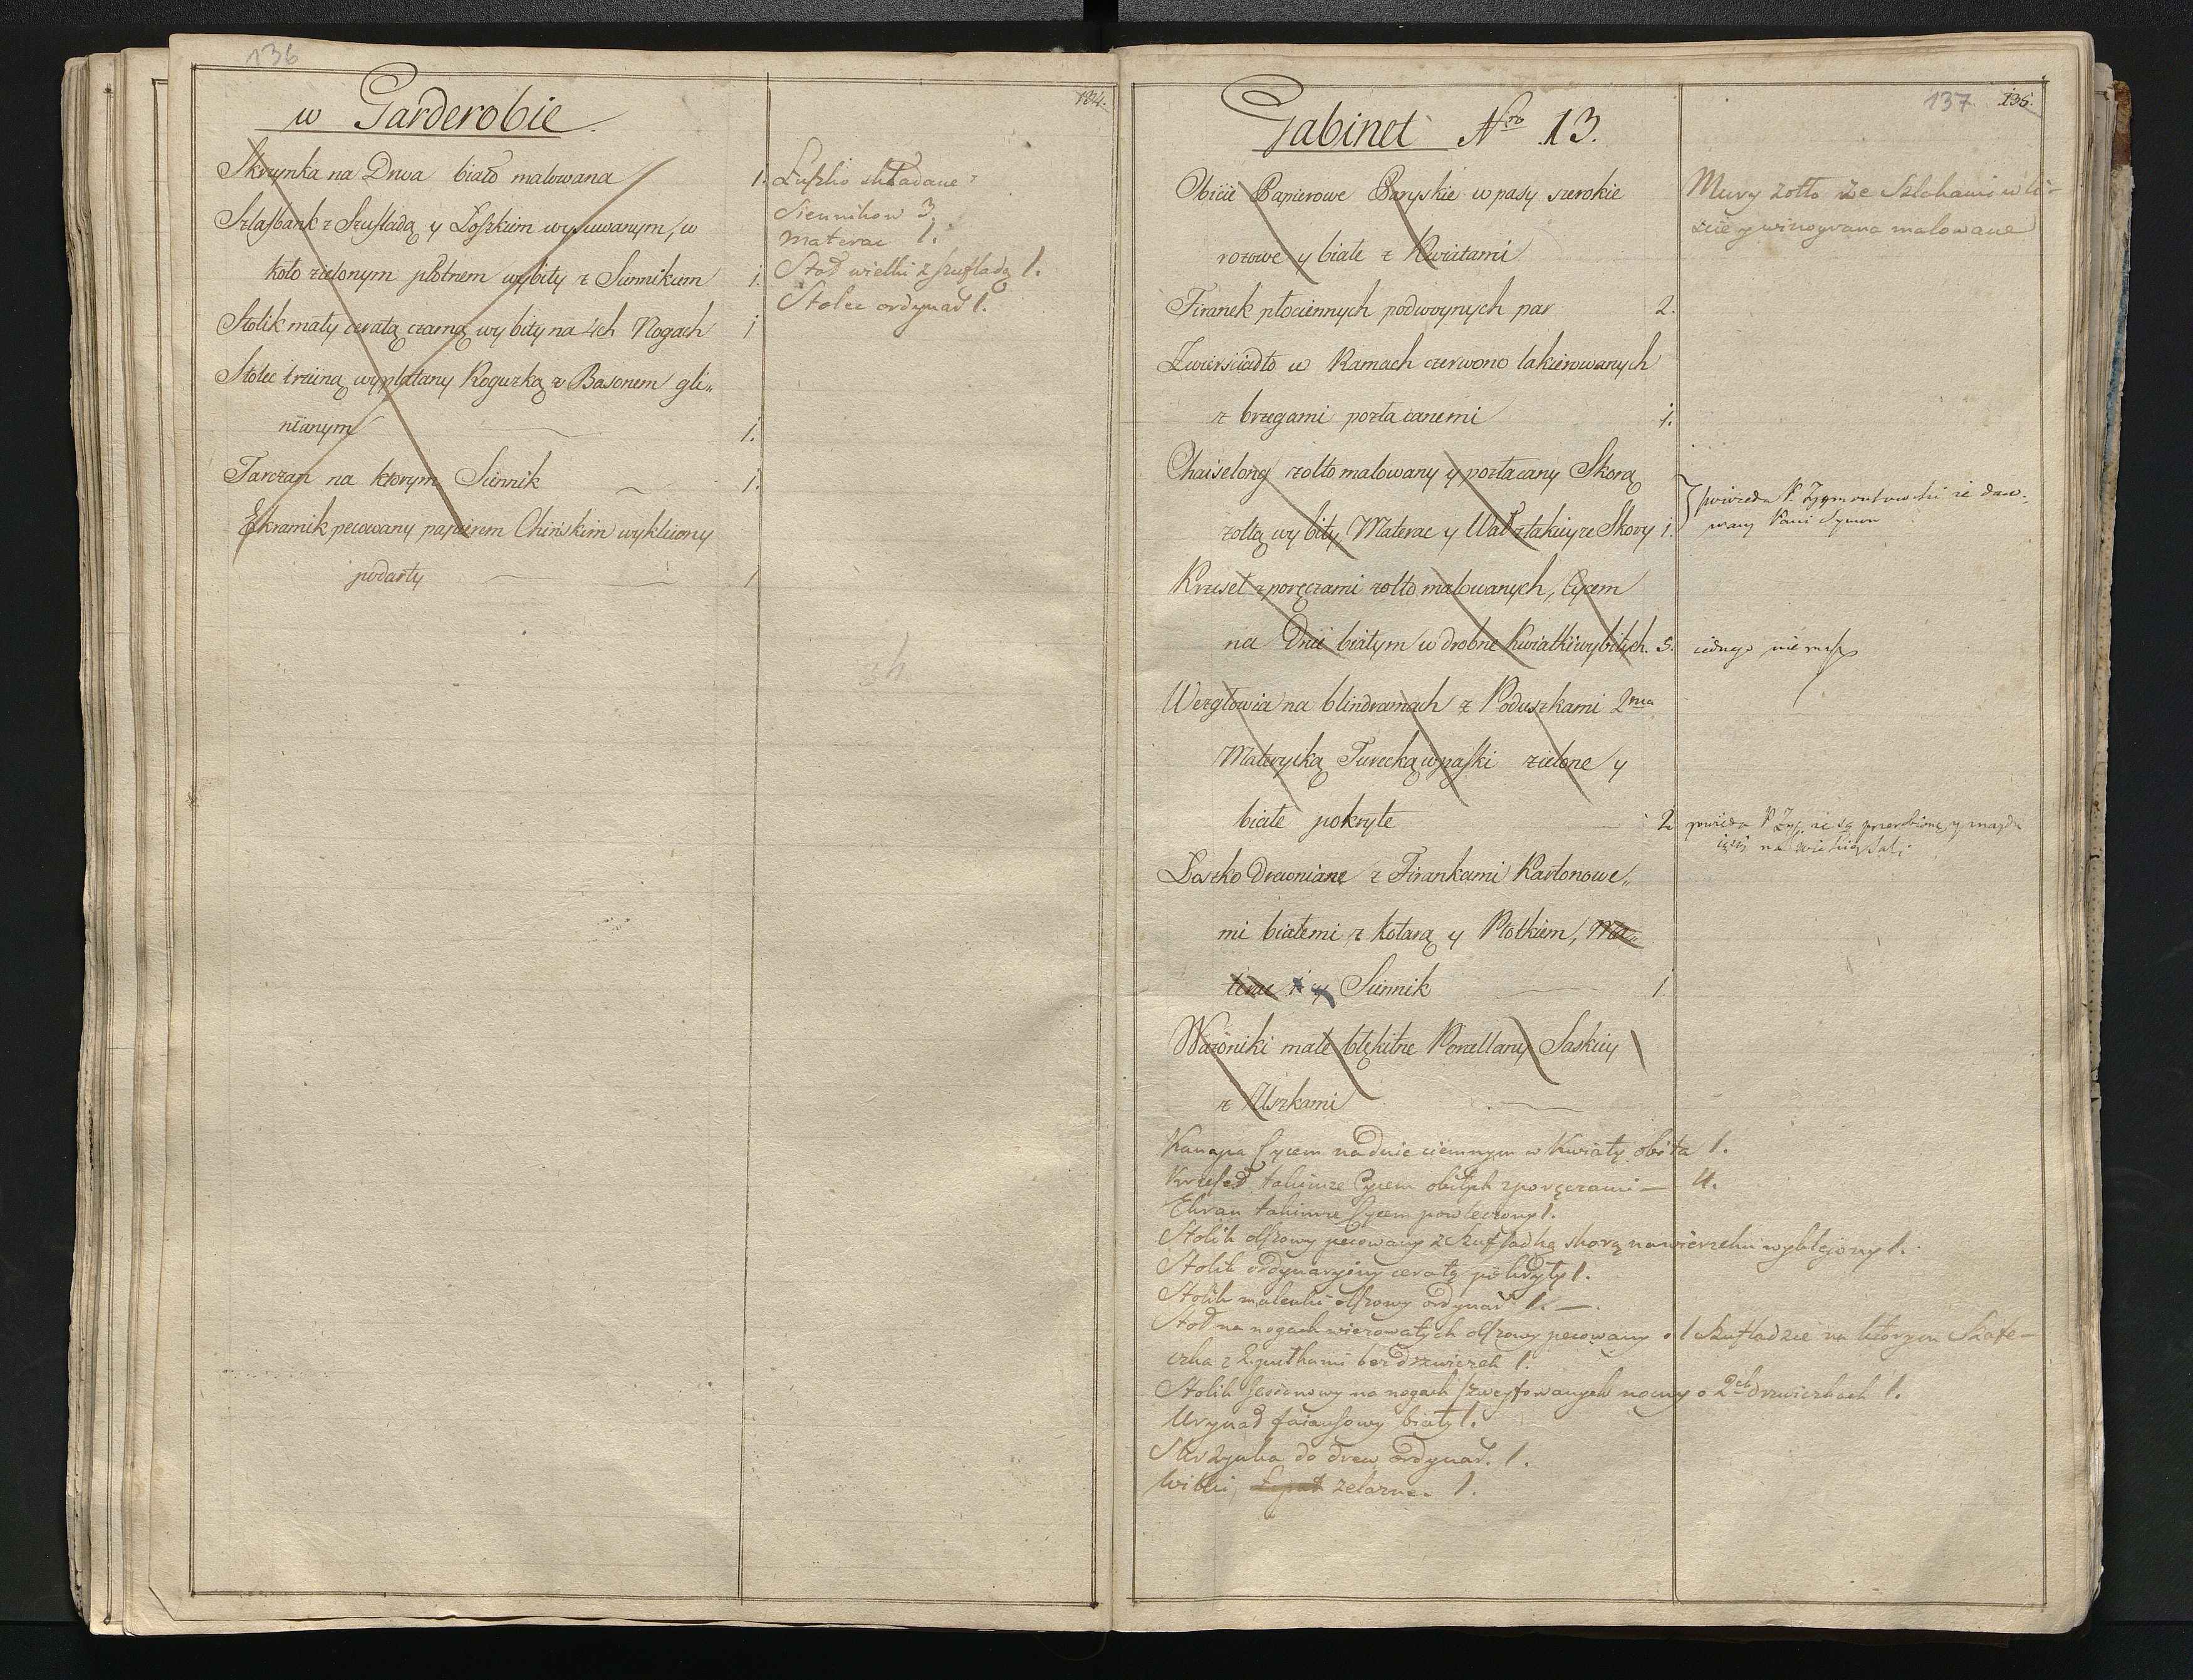 136
134.
w Garderobie
Skrzynka na Drwa biało malowana 1.
Szlasbank z Szufladą y Łoszkiem wysuwanym, w
koło zielonym płotnem wybity z Siennikiem 1.
Stolik mały ceratą czarną wybity na 4ch Nogach 1
Stolec trzciną wyplatany Roguzką z Basonem gli„
nianym 1.
Tarczan na ktorym Siennik 1.
Ekranik pecowany papierem Chińskim wykleiony
podarty 1
Łuszko składane
Siennikow 3.
materac 1.
Stoł wielki z szufladą 1.
Stolec ordynar 1.
137 135.
Gabinet Nro 13.
Obicie Papierowe Paryskie w pasy szerokie
rozowe y białe z Kwiatami
Firanek płociennych podwoynych par 2.
Zwierściadło w Ramach czerwono lakierowanych
z brzegami pozłacanemi 1.
Chaiselong zolto malowany y pozłacany Skorą
zołtą wybity, Materac y Wał z takieyze Skory 1.
Krzeseł z poręczami zolto malowanych, Cycem
na Dnie białym w drobne kwiatki wybitych. 5.
Wezgłowia na blindramach z Poduszkami 2ma
Materyiką Turecką w paski zielone y
białe pokryte 2
Łoszko drewniane z Firankami Kartonowe„
mi białemi z kotarą y Płotkiem, Ma„
terac 1 y Siennik 1
Wazoniki małe błękitne Porcellany Saskiey
z Uszkami
Kanapa Cycem na dnie ciemnym w Kwiaty obita 1.
Krzeseł takimze Cycem obitych z poręczami — 4.
Ekran takimze Cycem powleczony 1.
Stolik olszowy pecowany z Szufladką skorą na wierzchu wyklejony 1.
Stolik ordynaryjny ceratą pokryty 1.
Stolik maleńki olszowy ordynar 1. —.
Stoł na nogach olszowy pecowany o 1 Szufladzie na ktorym Szafe—
czka z 2. pułkami bez drzwiczek 1.
Stolik Jesionowy na nogach nocny o 2ch drzwiczkach 1.
Urynał faiansowy biały 1.
Skrzynka do drew ordynar. 1.
Wilki, zelazne. 1.
Mury zołto ze Szlakami w li-
ście y winogrona malowane
powieda P. Zygmontowski ze
Pani
iednego nie masz
powieda P Zyg. ze są przerobione, y znaydu
ią się na wielkiey Sali